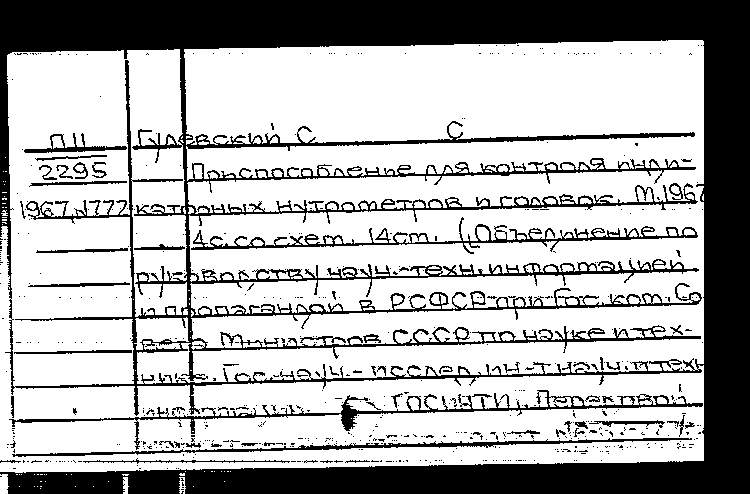 П11 Гулевский, С С
2295 Приспособление для контроля инди-
1967,N777 каторных нутрометров и головок. М,1967
4с. со схем. 14см. (Объединение по
руководству науч.-техн. информацией
и пропагандой в РСФСР при Гос. ком. Со
вета Министров СССР по науке и тех-
нике. Гос. науч.- исслед. ин-т науч. и техн
информации. ГОСИНТИ). Передовой